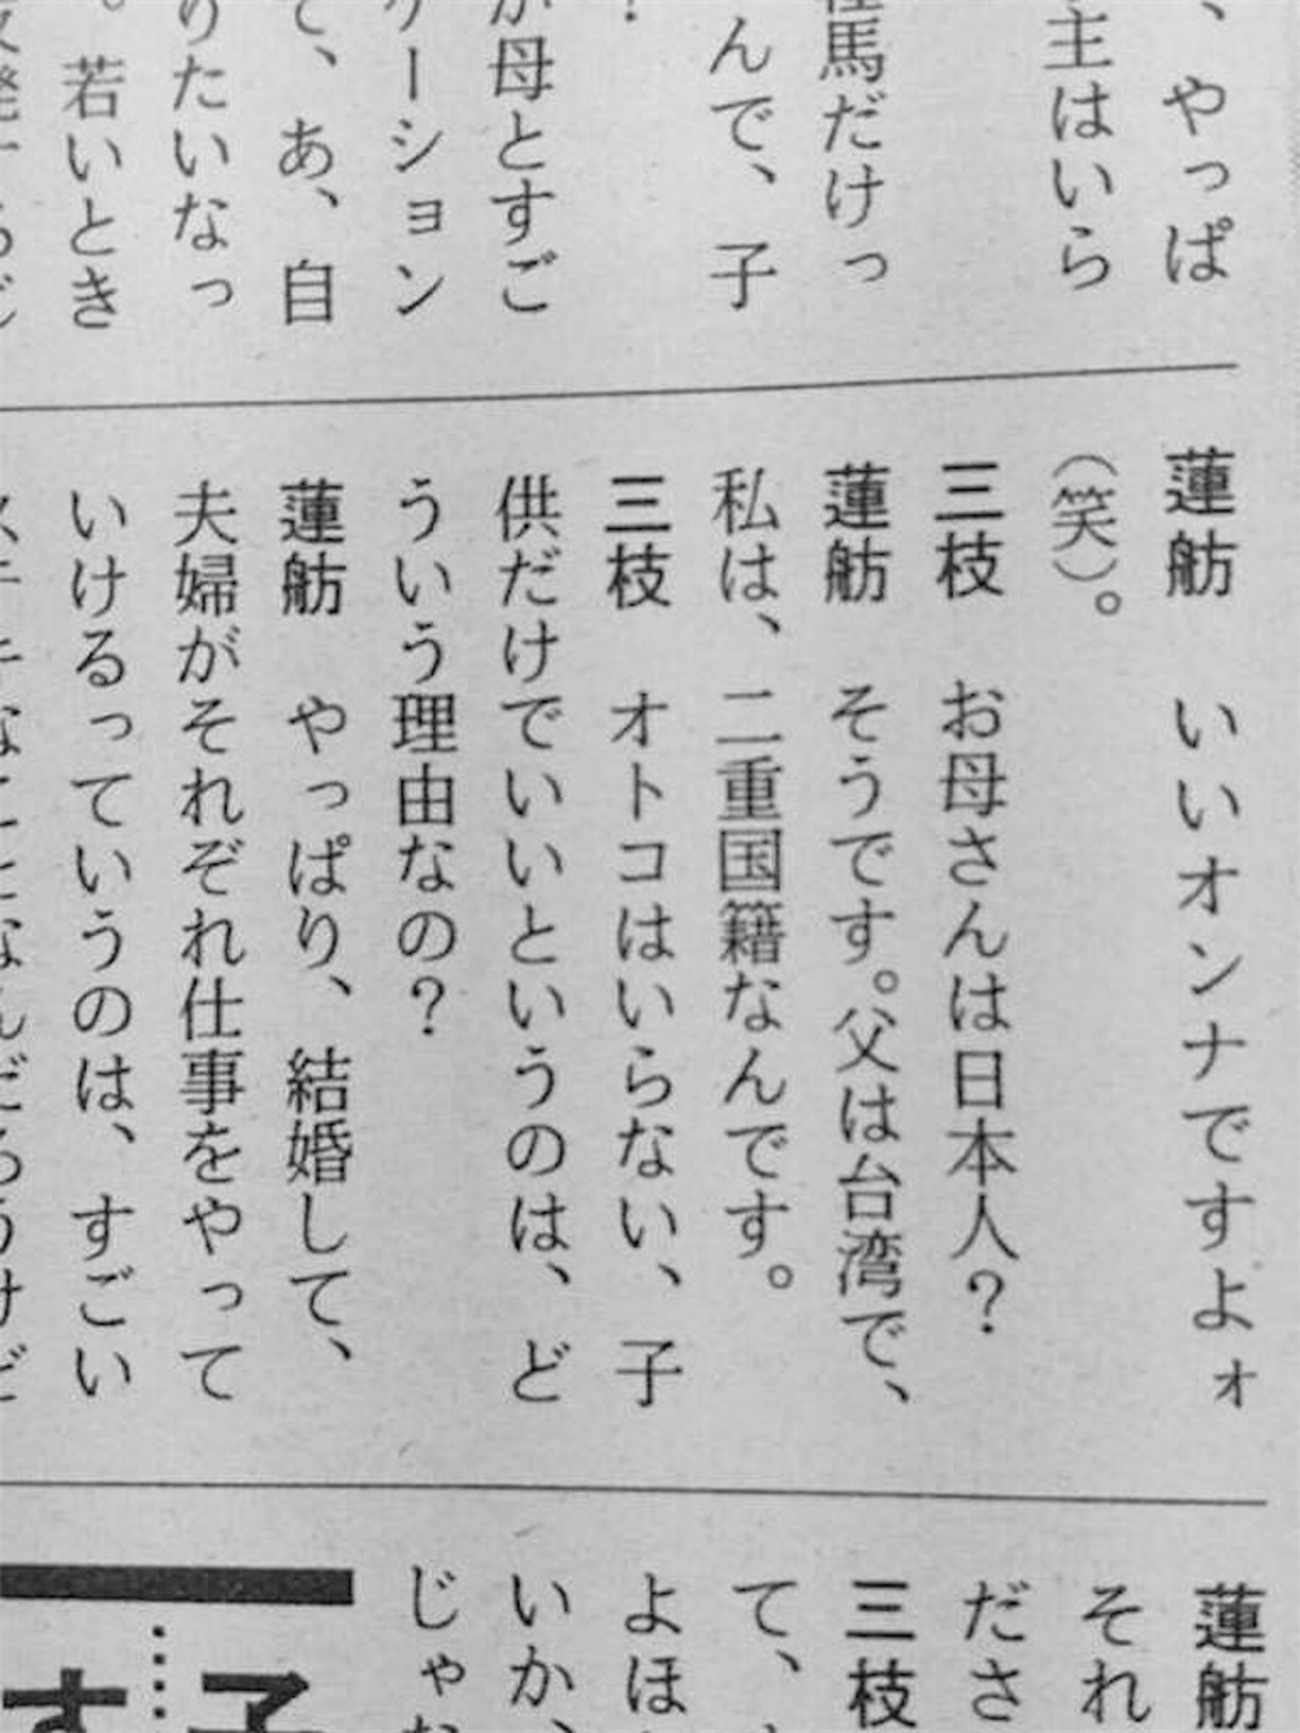 、やっぱ
主はいら
馬だけっ
んで、子
?
が母とすご
ケーション
て、あ、自
りたいなっ
。若いとき
蓮舫　いいオンナですよォ
(笑)。
三枝　お母さんは日本人?
蓮舫　そうです。父は台湾で、
私は、二重国籍なんです。
三枝　オトコはいらない、子
供だけでいいというのは、ど
ういう理由なの?
蓮舫　やっぱり、結婚して、
夫婦がそれぞれ仕事をやって
いけるっていうのは、すごい
ステキなことなんだろうけど
蓮舫
それ
ださ
三枝
て、
よほ
いか、
じゃな
子
す